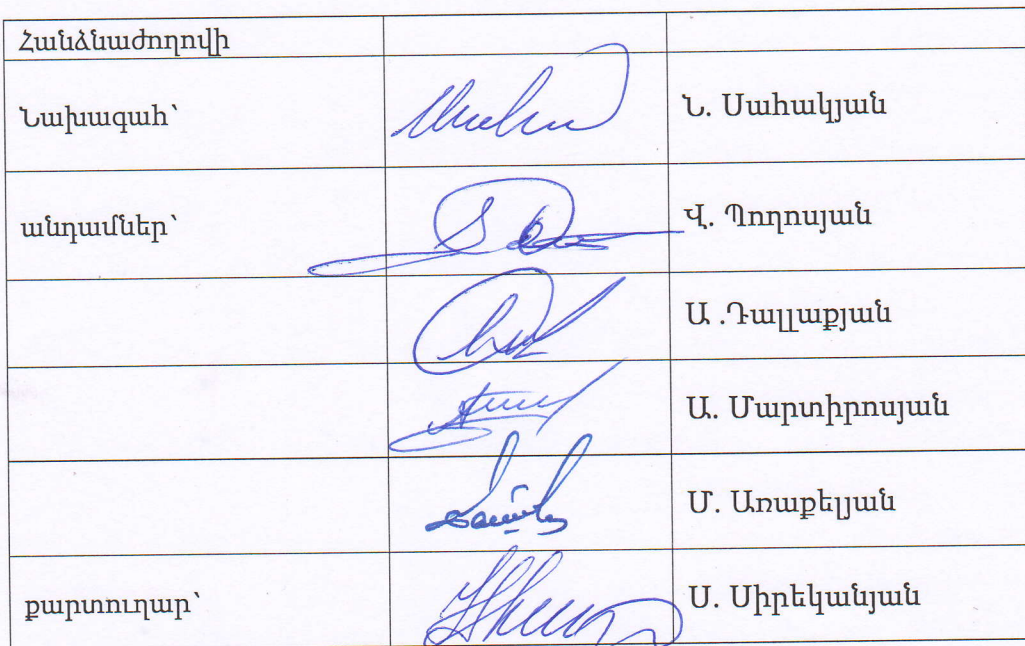 Հանձնաժողովի
Նախագահ՝ Ն. Սահակյան
անդամներ՝ Վ. Պողոսյան
Ա .Դալլաքյան
Ա. Մարտիրոսյան
Մ. Առաքելյան
քարտուղար՝ Ս. Սիրեկանյան